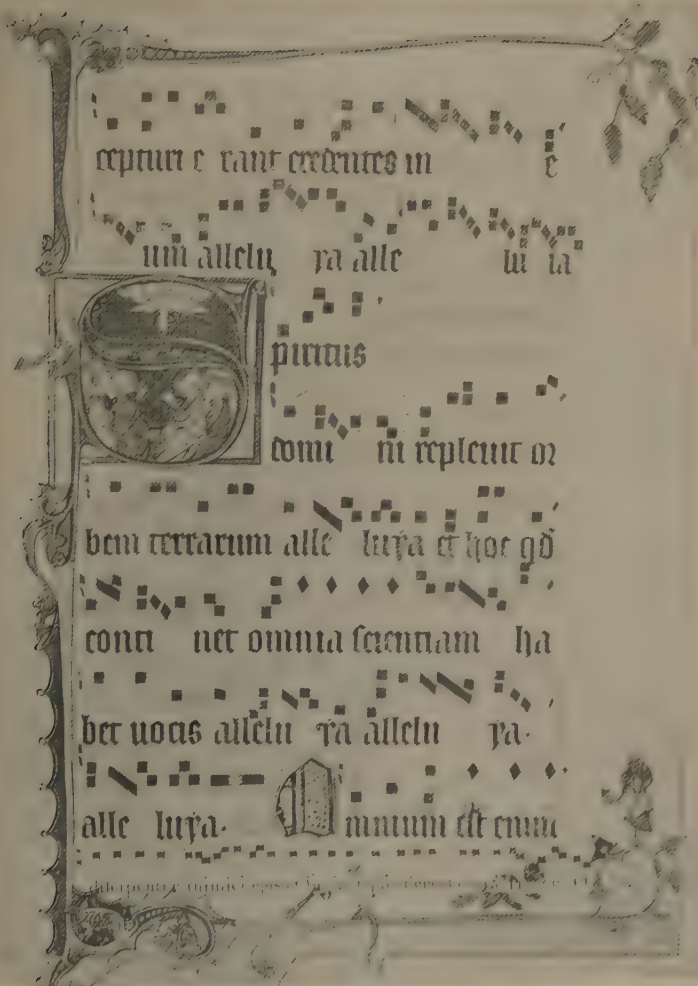 cepturi e rant credentes in e
um allelu ya alle lu ia
Spiritus
domi ni repleuit or
bem terrarum alle luya et hoc qđ
conti net omnia scientiam ha
bet uocis allelu ya allelu ya.
alle luya. Omnium est enim